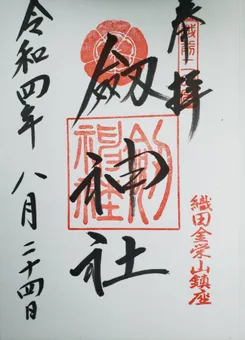 奉拝
劔神社
劔神社
織田金栄山鎮座
令和四年 八月二十四日